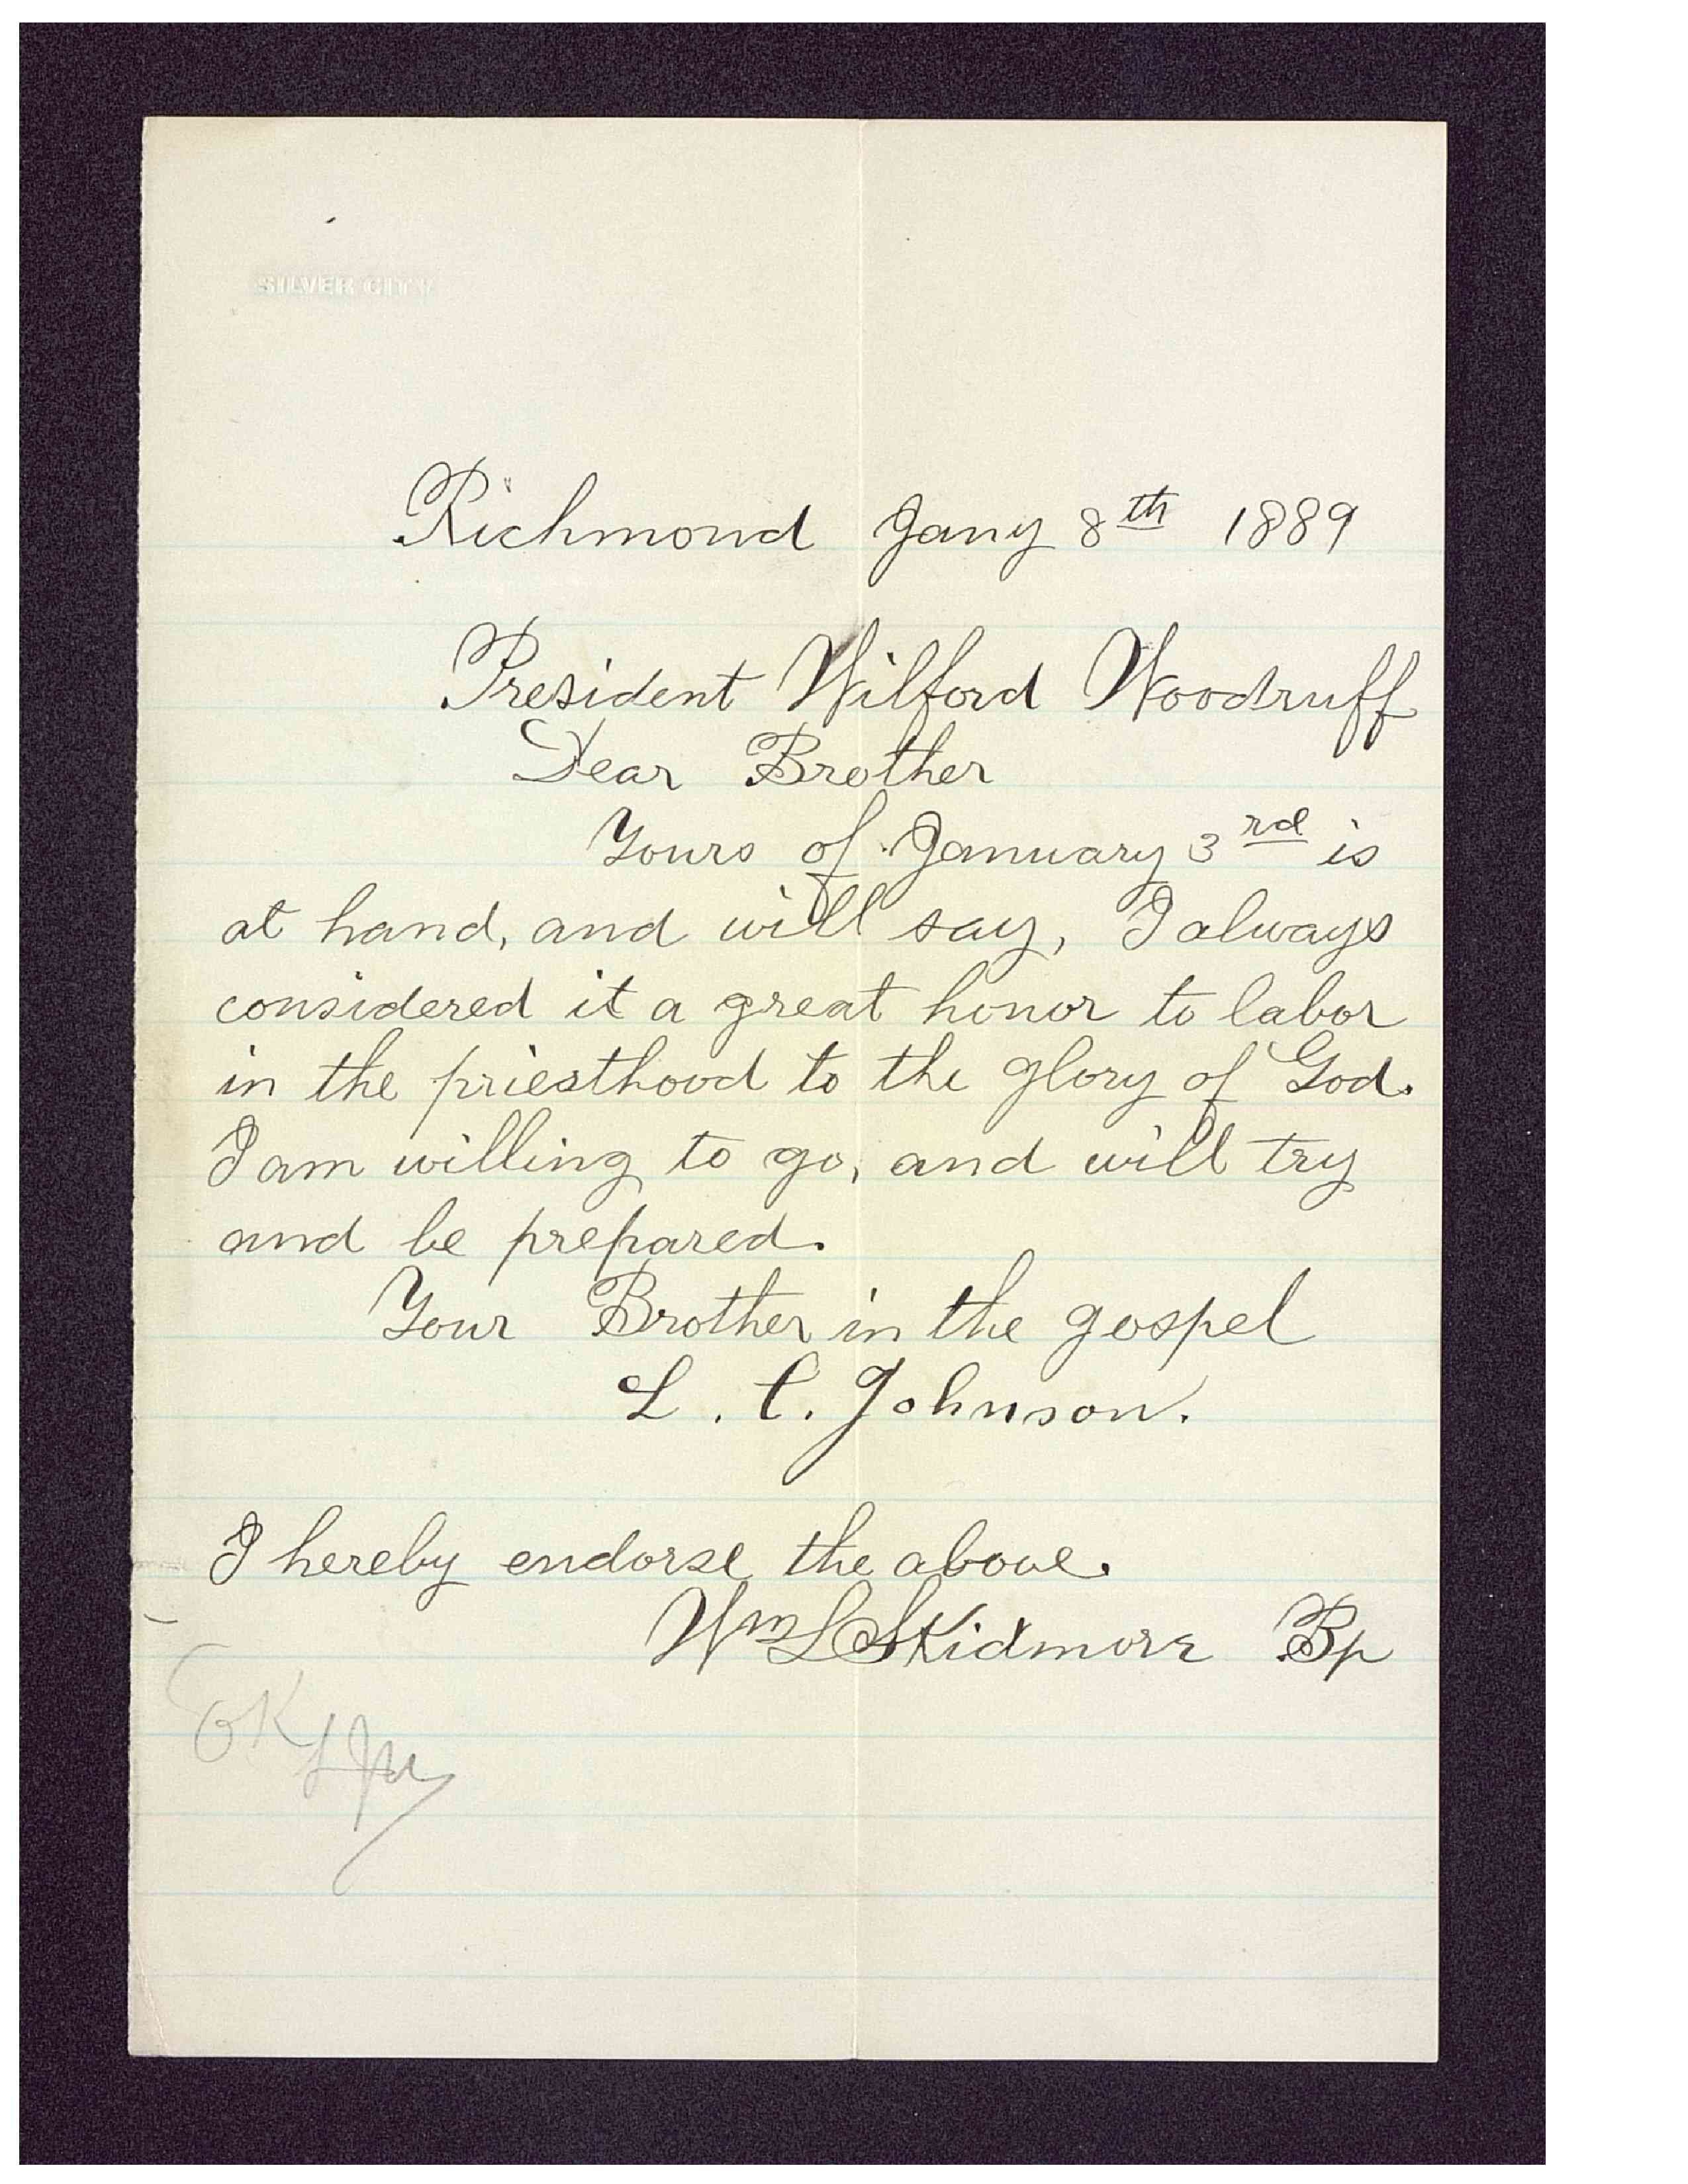 SILVER CITY
Richmond Jany 8th 1889
President Wilford Woodruff
Dear Brother
Yours of January 3rd is
at hand, and will say, I always
considered it a great honor to labor
in the priesthood to the glory of God.
I am willing to go, and will try
and be prepared.
Your Brother in the gospel
L. C. Johnson.
I hereby endorse the above.
Wm L Skidmore Bp
OK